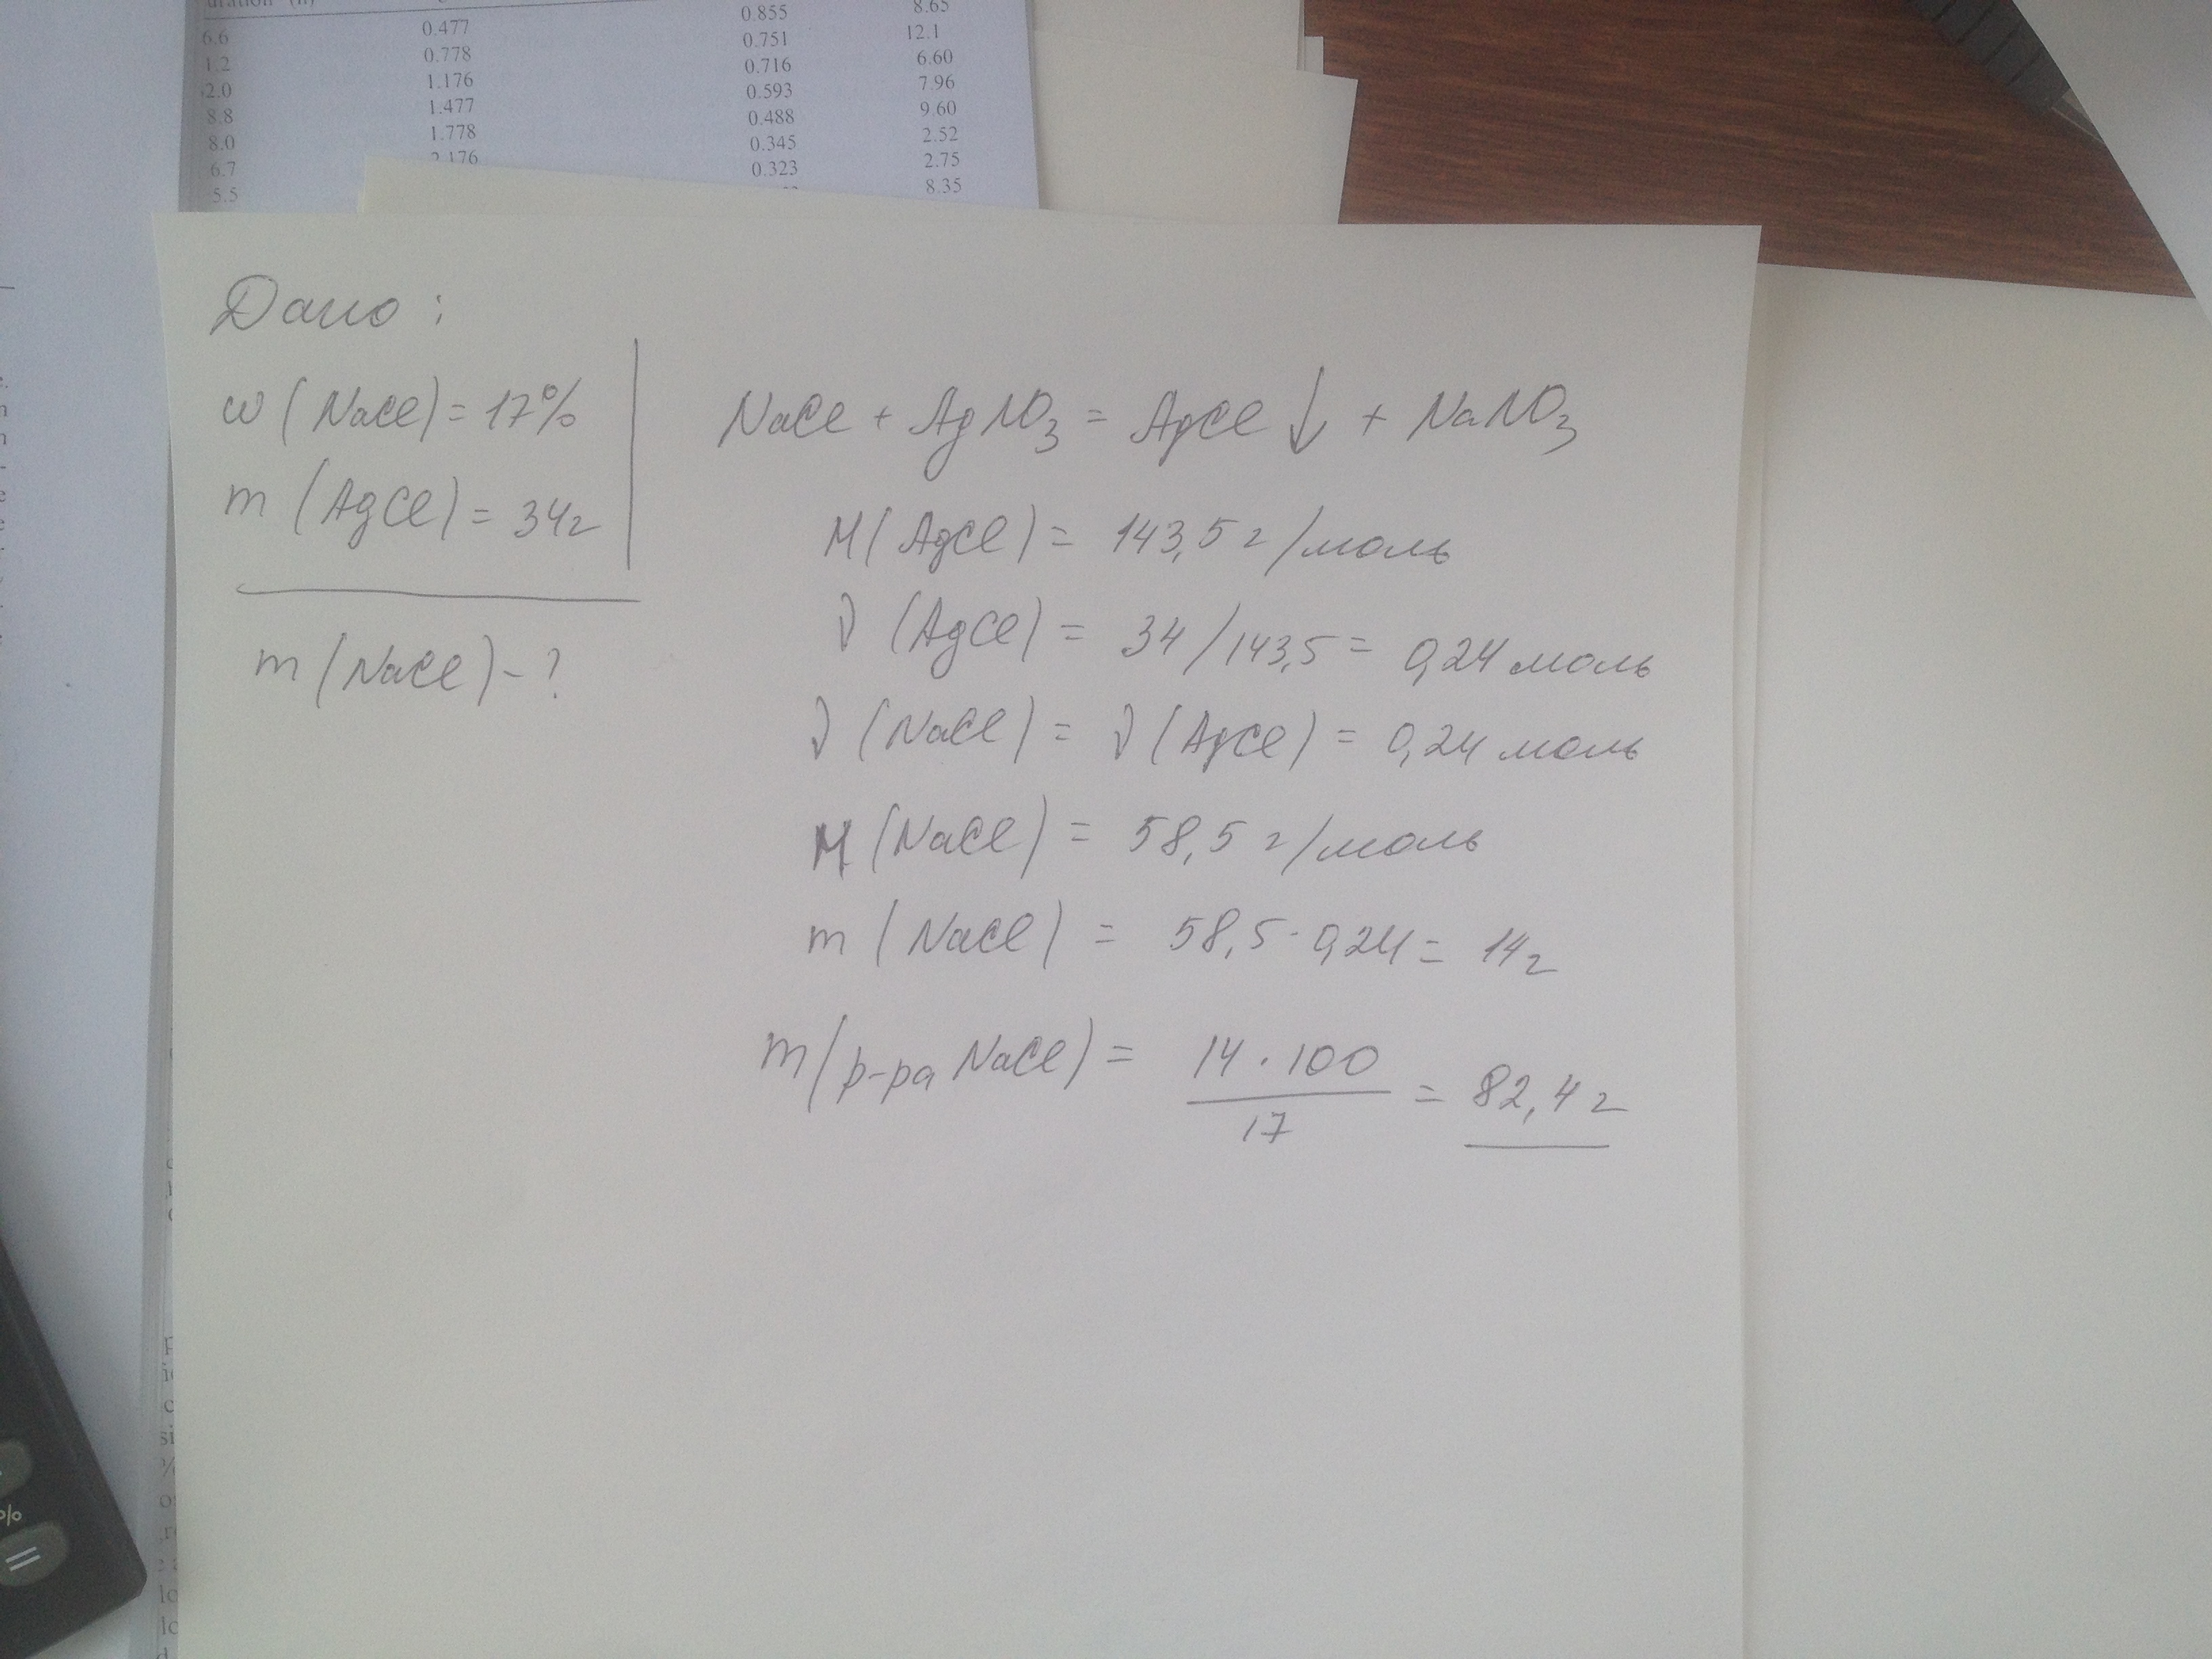 0.477 0.855 8.65
6.6 0.778 0.751 12.1
1.2 1.176 0.716 6.60
2.0 1.477 0.593 7.96
8.8 1.778 0.488 9.60
8.0 2.176 0.345 2.52
6.7 0.323 2.75
5.5 8.35
Дано:
ω (NaCl) = 17%
m (AgCl) = 34г
m (NaCl) - ?
NaCl + AgNO₃ = AgCl ↓ + NaNO₃
M (AgCl) = 143,5 г/моль
ν (AgCl) = 34 / 143,5 = 0,24 моль
ν (NaCl) = ν (AgCl) = 0,24 моль
M (NaCl) = 58,5 г/моль
m (NaCl) = 58,5 · 0,24 = 14 г
m (р-ра NaCl) = 14 · 100 / 17 = 82,4 г
%
=